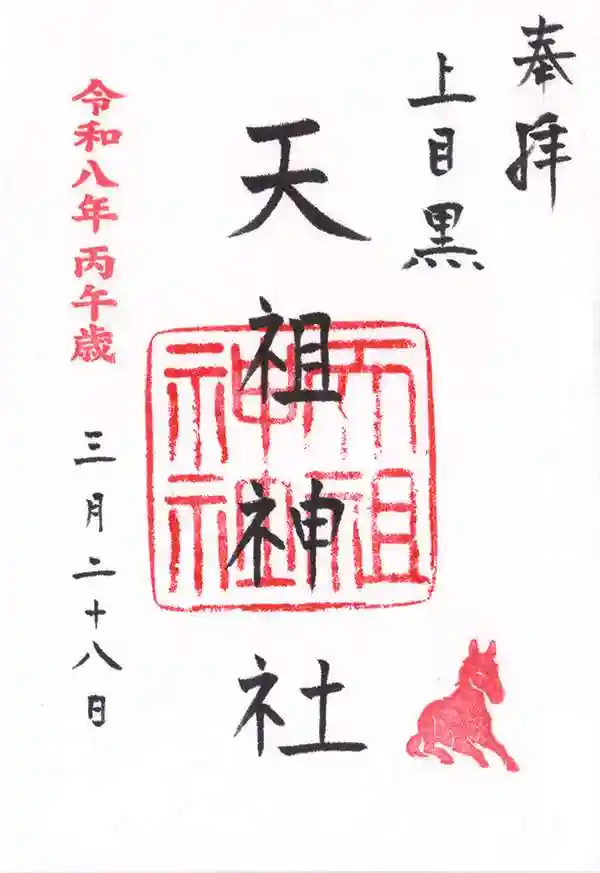 奉拝
上目黒
天祖神社
天祖神社
令和八年丙午歳
三月二十八日